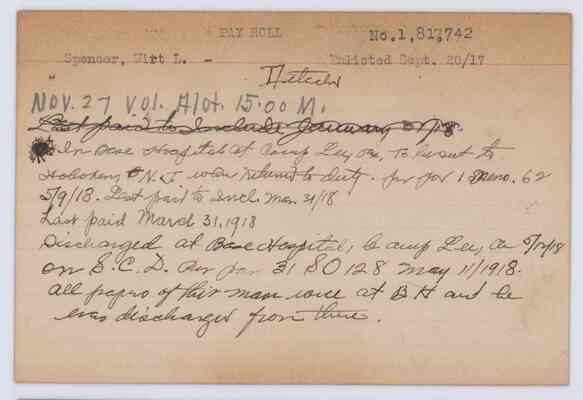 PAY ROLL No.1,817,742
Spencer, Wirt L. - Enlisted Sept. 20/17
Detach
NOV. 27 VOL. Alot. 15.00 M.
Last paid to Include January 31/18.
In Base Hospital at Camp Lee, Va, To be sent to
Hoboken, N.J when returned to duty. per par 1 Memo. 62
5/9/18. Last paid to Incl. Mar. 31/18
Last paid March 31, 1918
Discharged at Base Hospital, Camp Lee, Va 5/12/18
on S.C.D. Per par 31 SO 128 May 11/1918.
all papers of this man were at B H and he
was discharged from there.